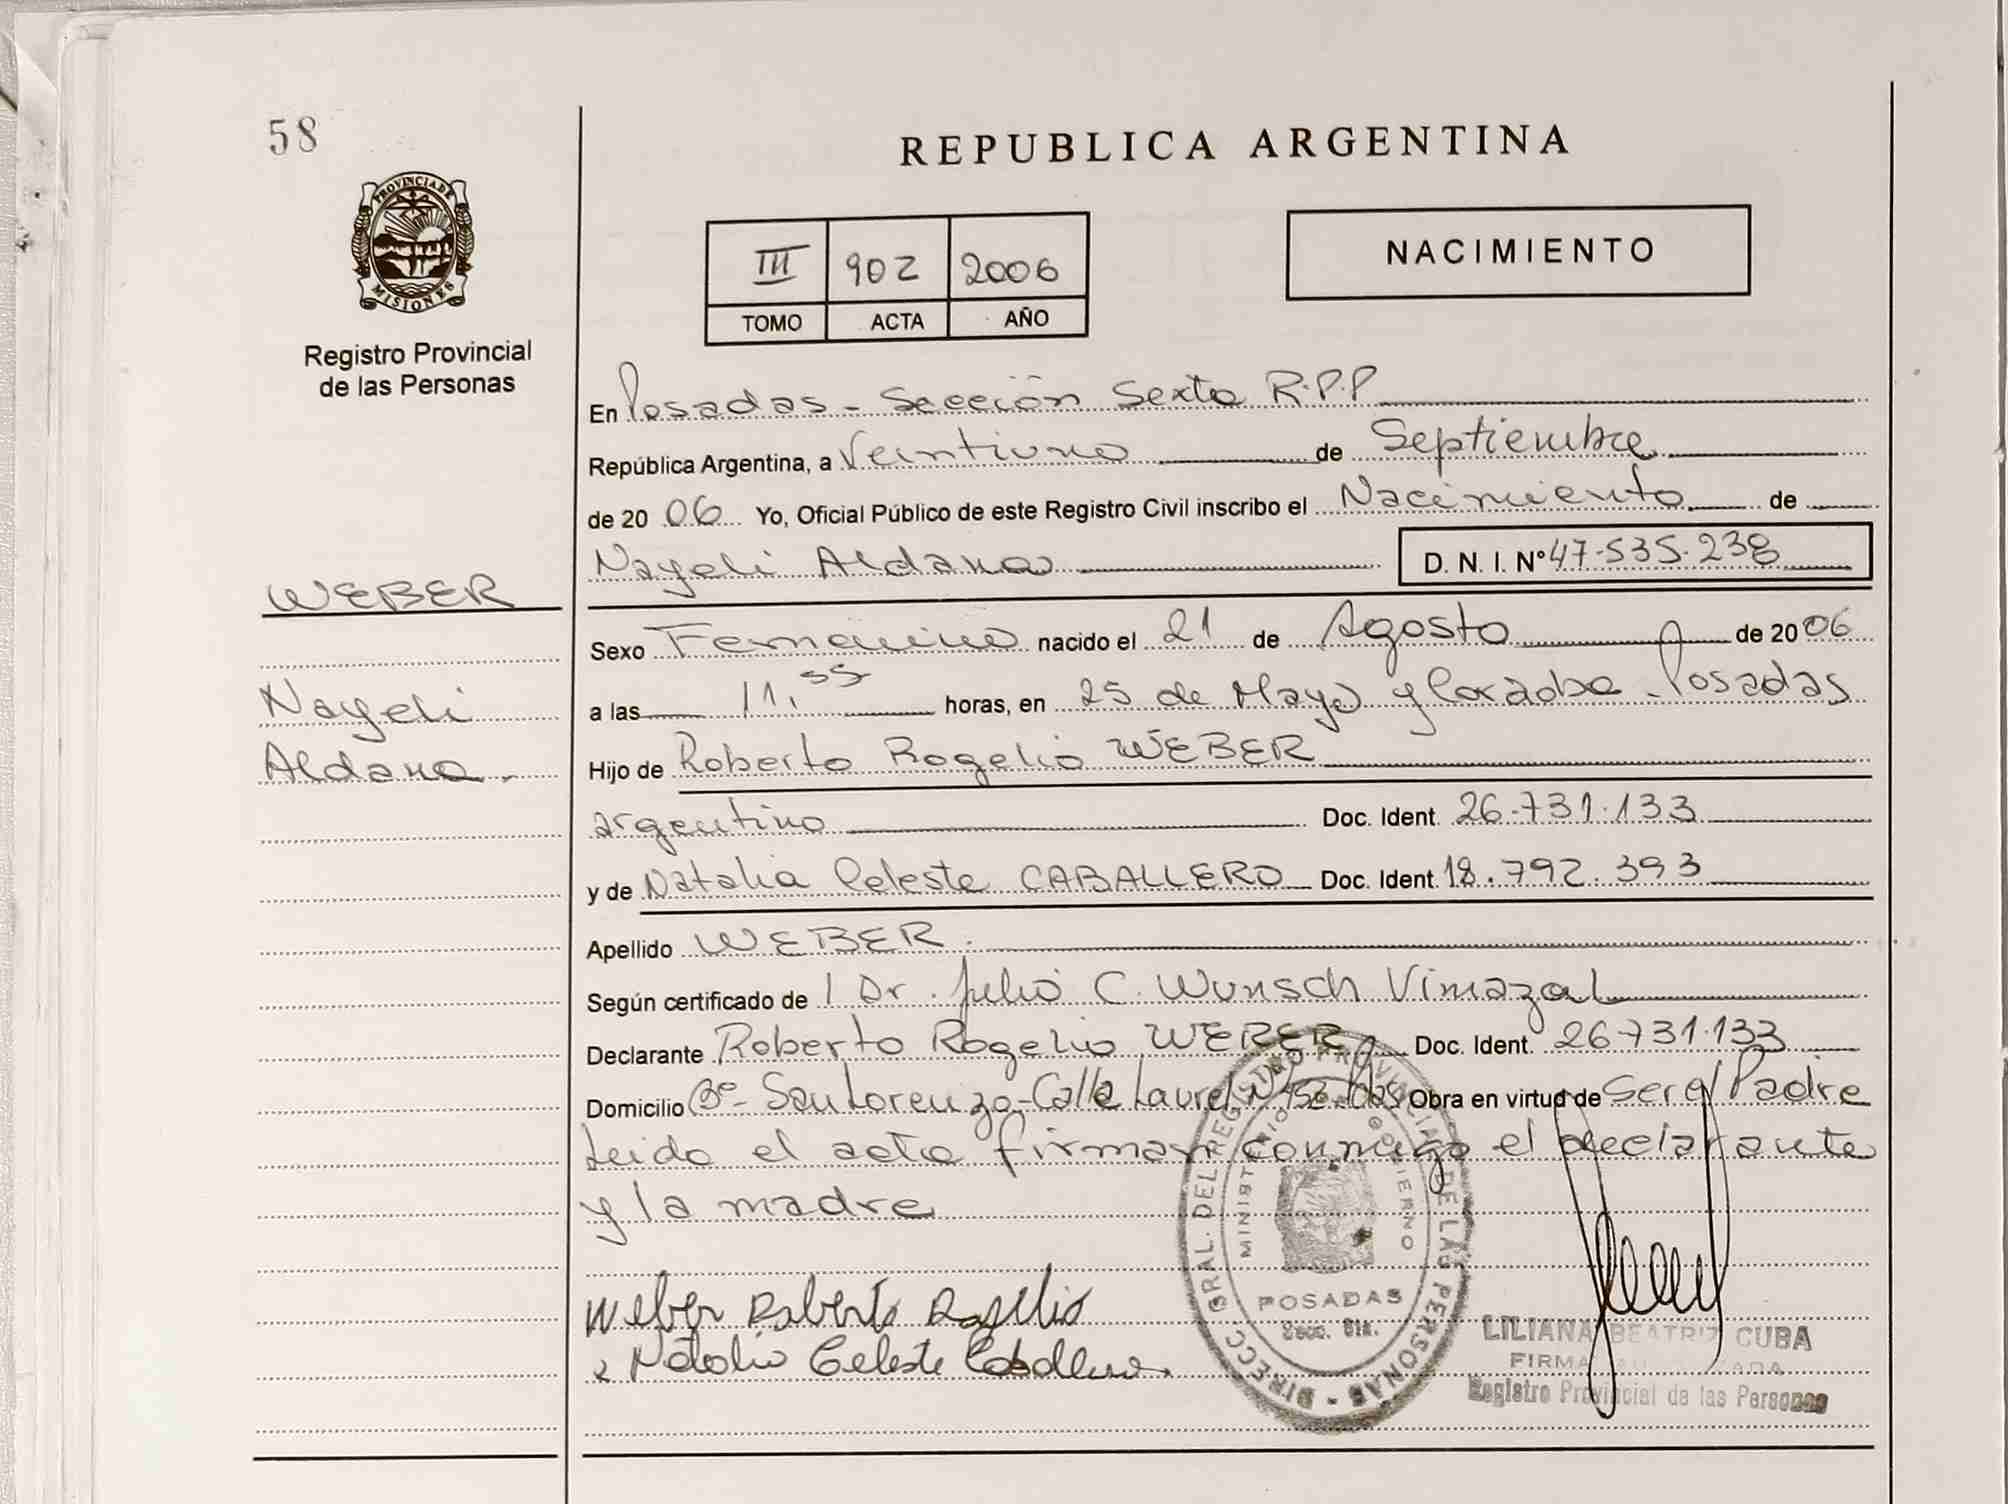 58
PROVINCIA DE
MISIONES
Registro Provincial
de las Personas
WEBER
Nayeli
Aldana.
REPUBLICA ARGENTINA
III 902 2006
TOMO ACTA AÑO
NACIMIENTO
En Posadas - Sección Sexta R.P.P
República Argentina, a Veintiuno de Septiembre
de 2006 Yo, Oficial Público de este Registro Civil inscribo el Nacimiento de
Nayeli Aldana D. N. I. Nº 47.535.238
Sexo Femenino nacido el 21 de Agosto de 2006
a las 11,55 horas, en 25 de Mayo y Cordoba - Posadas
Hijo de Roberto Rogelio WEBER
argentino Doc. Ident. 26.731.133
y de Natalia Celeste CABALLERO Doc. Ident. 18.792.393
Apellido WEBER.
Según certificado de l Dr. Julio C. Wunsch Vimazal
Declarante Roberto Rogelio WEBER Doc. Ident. 26731.133
Domicilio Bº- San Lorenzo - Calle Laurel Obra en virtud de Ser el Padre
Leido el acta firman conmigo el declarante
y la madre
Weber Roberto Rogelio
Natalia Celeste Caballero.
DIRECC. GRAL. DEL REGISTRO PROVINCIAL DE LAS PERSONAS
MINISTERIO GOBIERNO
POSADAS
Secc. 6ta.
LILIANA BEATRIZ CUBA
FIRMA AUTORIZADA
Registro Provincial de las Personas